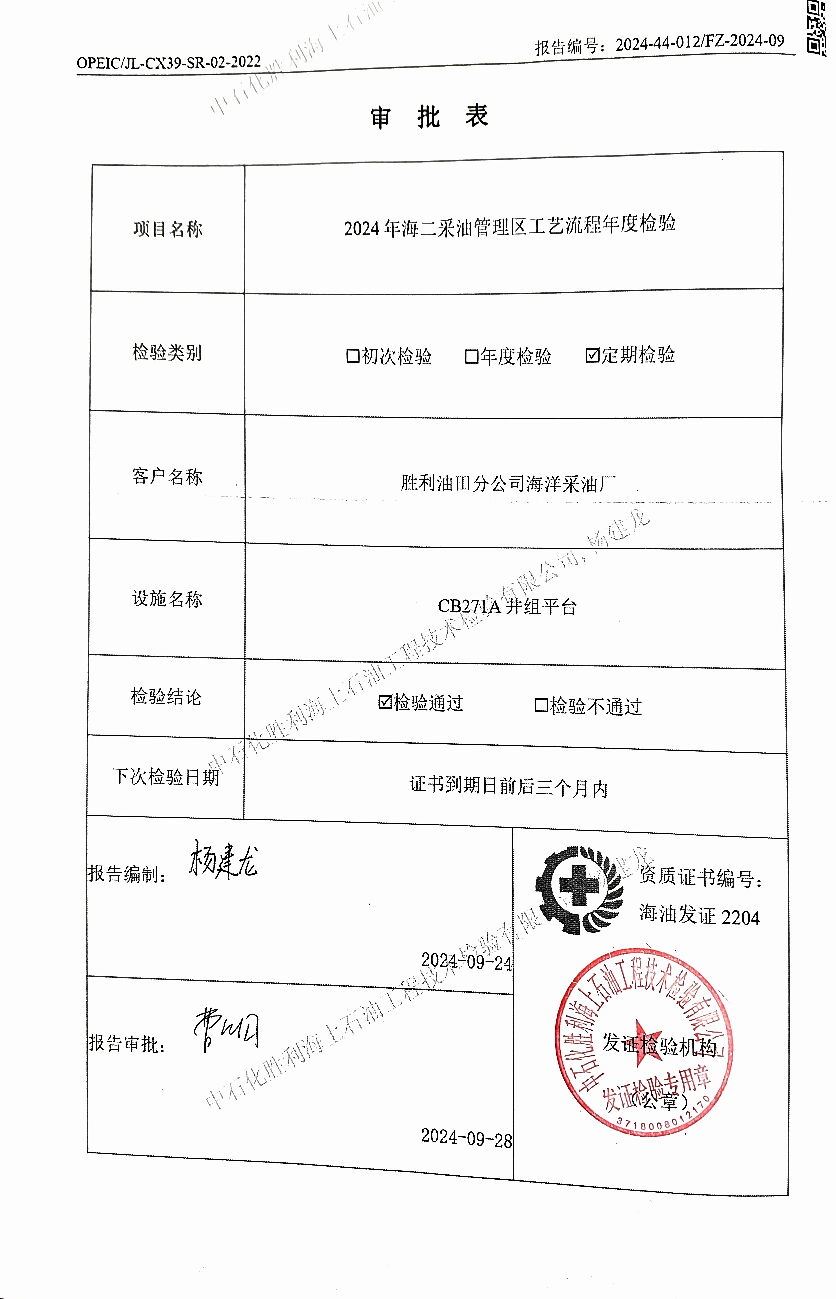 OPEIC/JL-CX39-SR-02-2022
报告编号：2024-44-012/FZ-2024-09
审 批 表
项目名称
2024年海二采油管理区工艺流程年度检验
检验类别
☐初次检验 ☐年度检验 ☑定期检验
客户名称
胜利油田分公司海洋采油厂
设施名称
CB271A 井组平台
检验结论
☑检验通过 ☐检验不通过
下次检验日期
证书到期日前后三个月内
报告编制： 杨建龙
2024-09-24
资质证书编号：
海油发证 2204
报告审批：
2024-09-28
发证检验机构
（公章）
中石化胜利海上石油工程技术检验有限公司
发证检验专用章
3718008012170
中石化胜利海上石油
中石化胜利海上石油工程技术检验有限公司, 杨建龙
中石化胜利海上石油工程技术检验有限 建龙